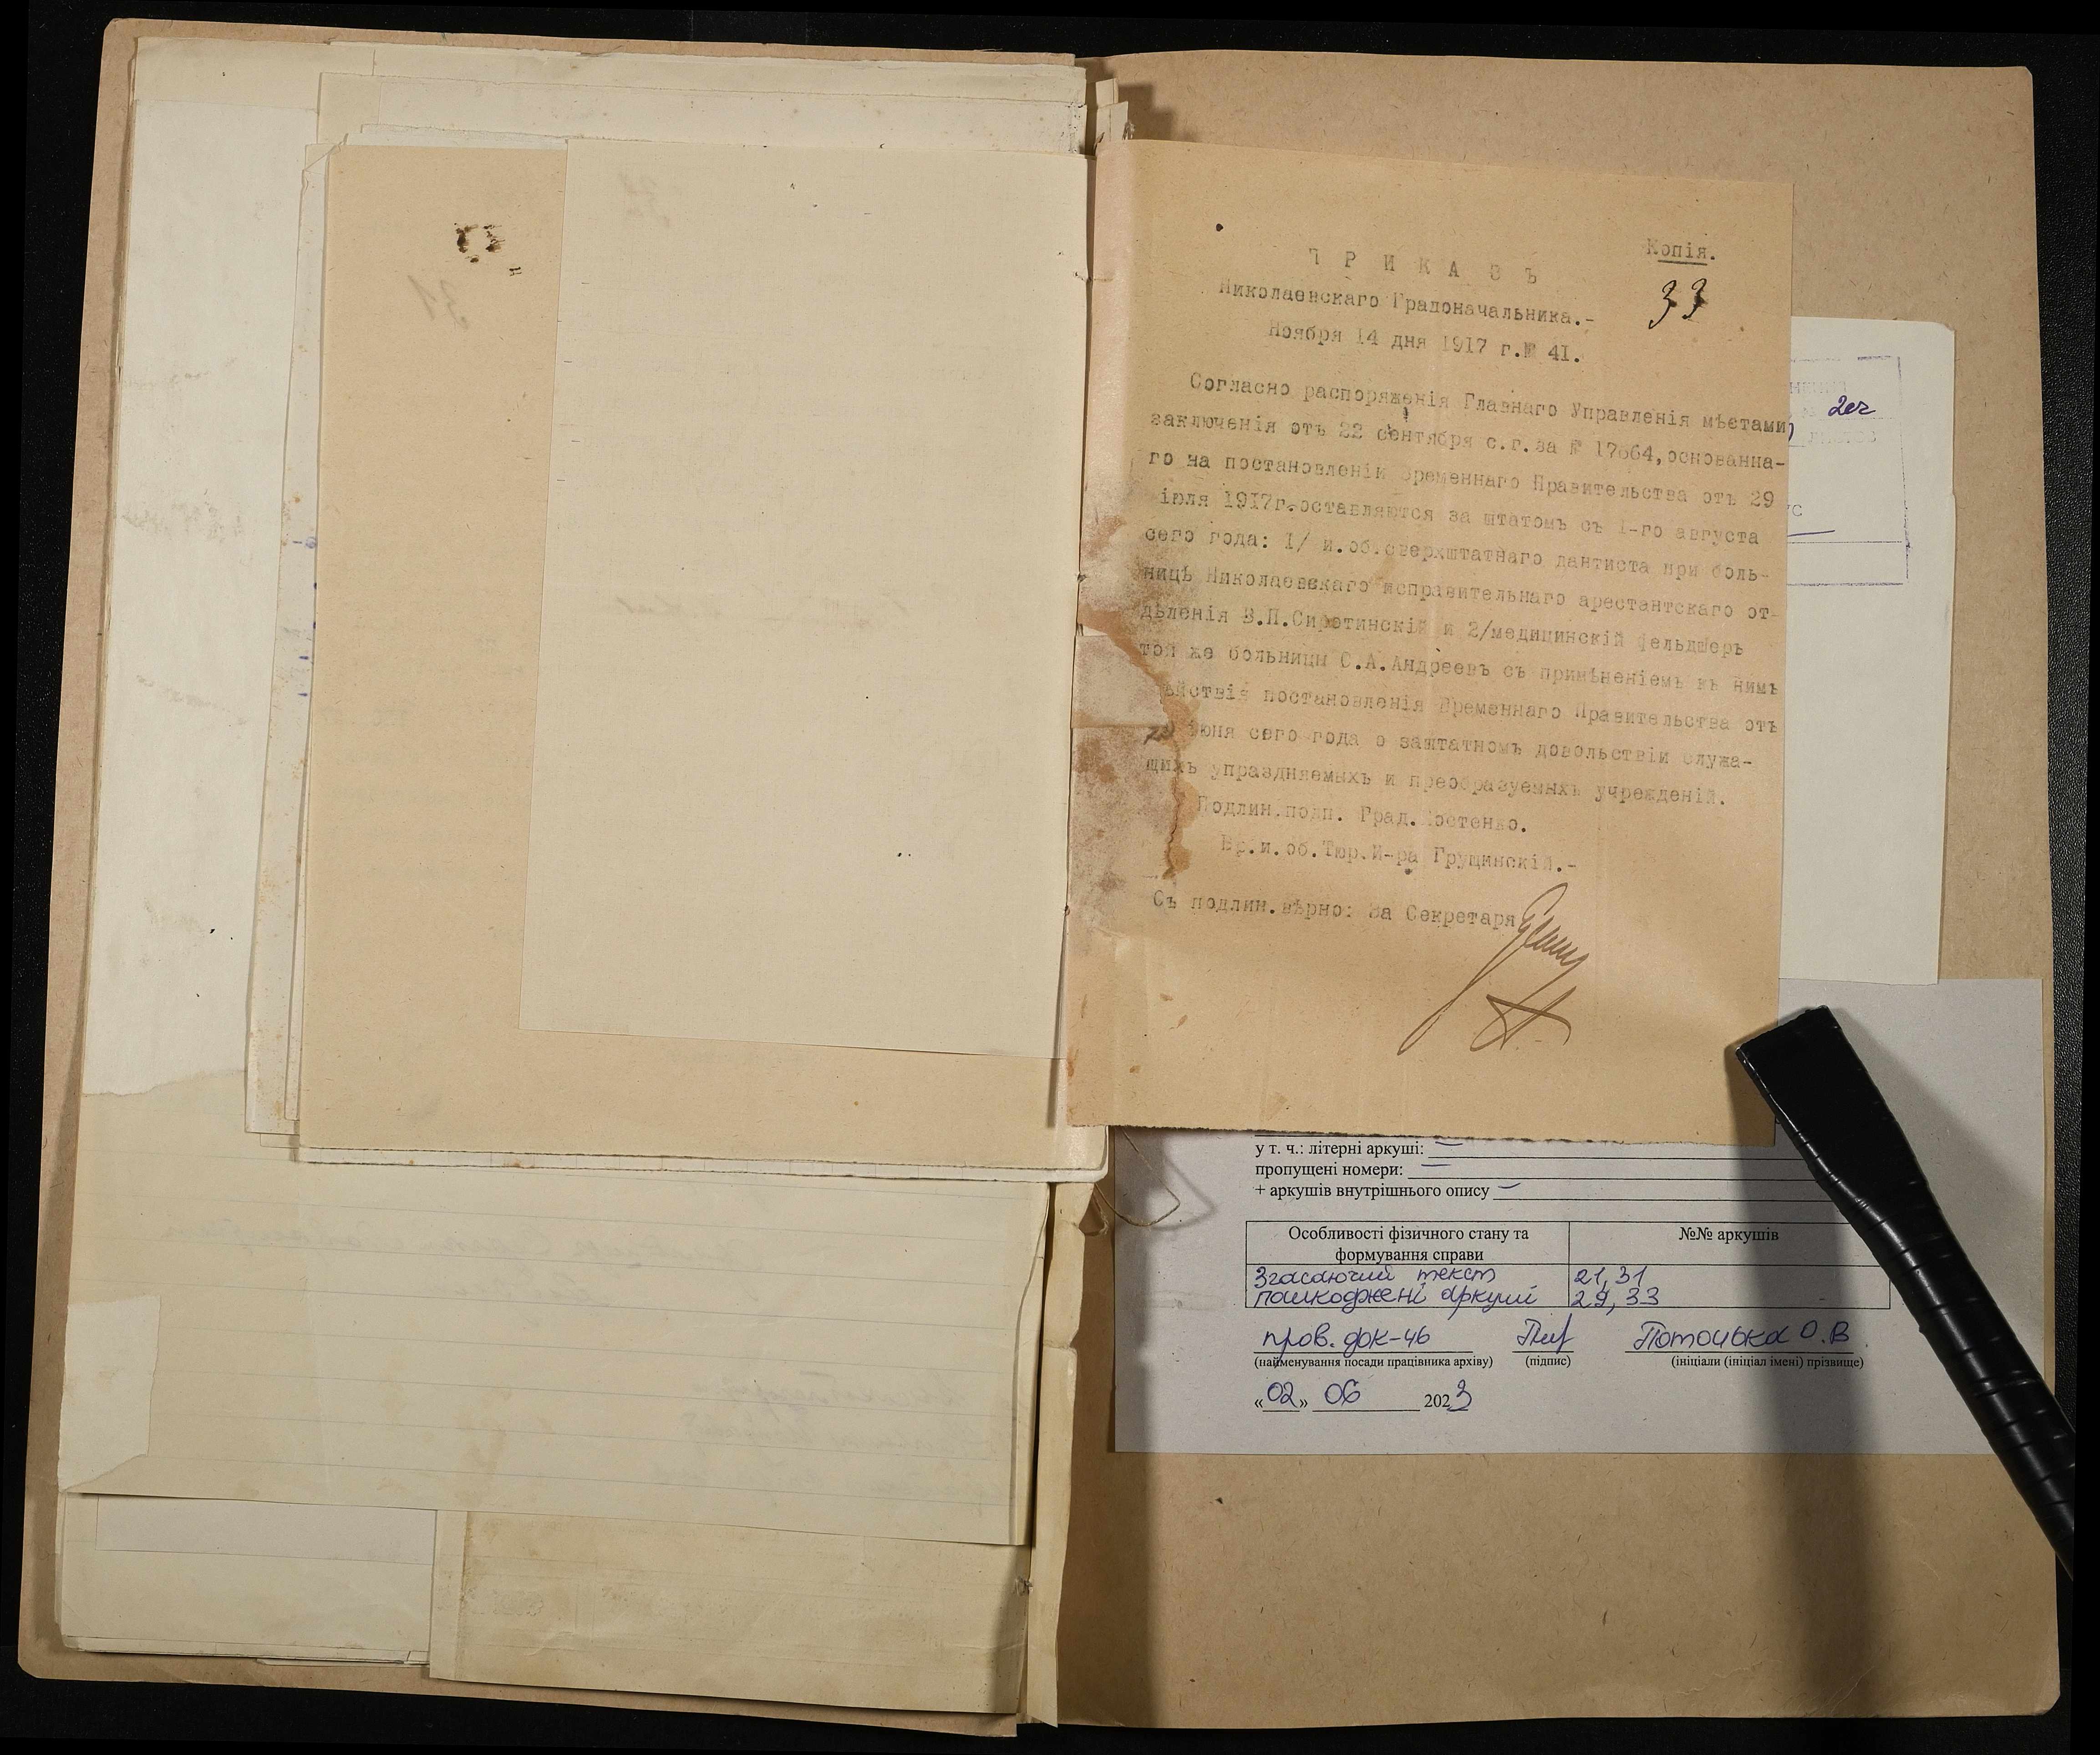 Копія.
33
П Р И К А З Ъ
Николаевскаго Градоначальника.-
Ноября 14 дня 1917 г.№ 41.
Согласно распоряженія Главнаго Управленія мѣстами
заключенія отъ 22 сентября с.г.за № 17664,основанна-
го на постановленіи Временнаго Правительства отъ 29
іюля 1917г.оставляются за штатомъ съ 1-го августа
сего года: 1/ и.об.сверхштатнаго дантиста при боль-
ницѣ Николаевскаго исправительнаго арестантскаго от-
дѣленія В.П.Сиротинскій и 2/медицинскій фельдшеръ
той же больницы С.А.Андреевъ съ примѣненіемъ къ нимъ
дѣйствія постановленія Временнаго Правительства отъ
іюня сего года о заштатномъ довольствіи служа-
щихъ упраздняемыхъ и преобразуемыхъ учрежденій.
Подлин.подп. Град. Костенко.
Вр.и.об.Тюр.И-ра Грущинскій.-
Съ подлин.вѣрно: За Секретаря
у т. ч.: літерні аркуші: —
пропущені номери: —
+ аркушів внутрішнього опису —
Особливості фізичного стану та формування справи
№№ аркушів
Згасаючий текст 21, 31
пошкоджені аркуші 29, 33
пров. док-
(найменування посади працівника архіву) (підпис) (ініціали (ініціал імені) прізвище)
«02» 06 2023
31
32